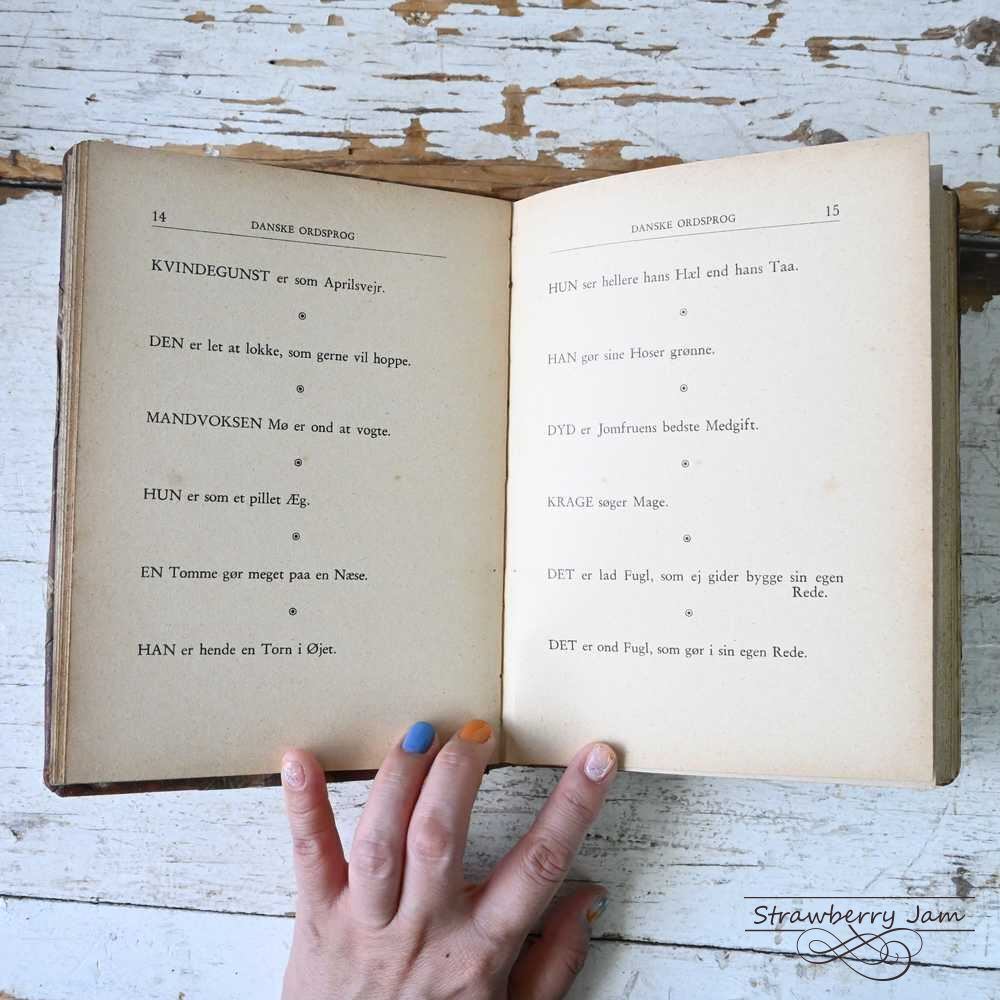 14
DANSKE ORDSPROG
KVINDEGUNST er som Aprilsvejr.
DEN er let at lokke, som gerne vil hoppe.
MANDVOKSEN Mø er ond at vogte.
HUN er som et pillet Æg.
EN Tomme gør meget paa en Næse.
HAN er hende en Torn i Øjet.
DANSKE ORDSPROG
15
HUN ser hellere hans Hæl end hans Taa.
HAN gør sine Hoser grønne.
DYD er Jomfruens bedste Medgift.
KRAGE søger Mage.
DET er lad Fugl, som ej gider bygge sin egen
Rede.
DET er ond Fugl, som gør i sin egen Rede.
Strawberry Jam